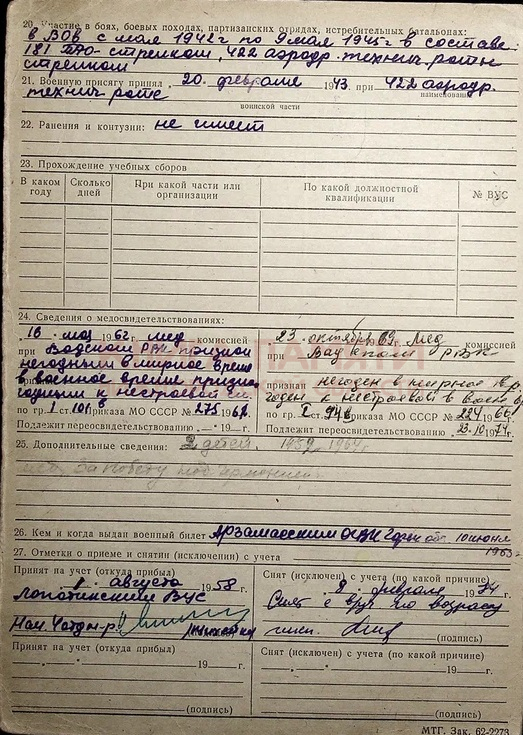 20. Участие в боях, боевых походах, партизанских отрядах, истребительных батальонах:
в ВОВ с мая 1942 г по 9 мая 1945 г в составе
181 стрелком, 422 аэродр. технич. роты
стрелком
21. Военную присягу принял 20 февраля 1943. при 422 аэродр.
наименование
технич. роте
воинской части
22. Ранения и контузии: не имеет
23. Прохождение учебных сборов
В каком году Сколько дней При какой части или организации По какой должностной квалификации № ВУС
24. Сведения о медосвидетельствованиях:
16 мая 1962 г. мед комиссией
при Вадском РВК признан
негодным в мирное время
в военное время признан
годным к нестроевой сл.
по гр. I ст. 101 приказа МО СССР № 275 196 г.
Подлежит переосвидетельствованию 19 г.
23 октября 69 мед комиссией
при Вадским РВК
признан негоден в мирное вр.
годен к нестроевой в воен. вр
по гр. I 94б приказа МО СССР № 224 66 г.
Подлежит переосвидетельствованию 23.10 1974 г.
25. Дополнительные сведения: 2 детей 1959, 1964 г.
мед. за Победу над Германией
26. Кем и когда выдан военный билет Арзамасским ОГВК Горьк. обл. 10 июня
1963 г.
27. Отметки о приеме и снятии (исключении) с учета
Принят на учет (откуда прибыл)
1 августа 1958 г.
Лопатинский ВУС
Нач.
Снят (исключен) с учета (по какой причине)
8 февраля 1974 г.
Снят с в/уч. по возрасту
(подпись)
Принят на учет (откуда прибыл)
19 г.
(подпись)
Снят (исключен) с учета (по какой причине)
19 г.
(подпись)
МТГ. Зак. 62-2273